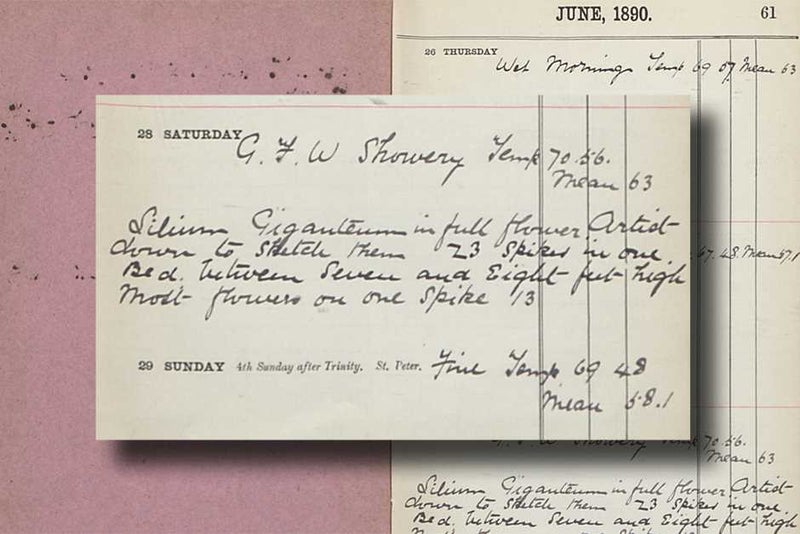 JUNE, 1890. 61
26 THURSDAY Wet Morning Temp 69 57 Mean 63
28 SATURDAY G. F. W Showery Temp 70.56.
Mean 63
Lilium Giganteum in full flower. Artist
down to sketch them 23 Spikes in one
Bed. between Seven and Eight feet high
Most flowers on one Spike 13
29 SUNDAY 4th Sunday after Trinity. St. Peter. Fine Temp 69 48
Mean 58.1
48. Mean 57.1
Showery Temp 70 56.
Mean 63
Lilium Giganteum in full flower. Artist
down to sketch them 23 Spikes in one
Bed. between Seven and Eight feet high